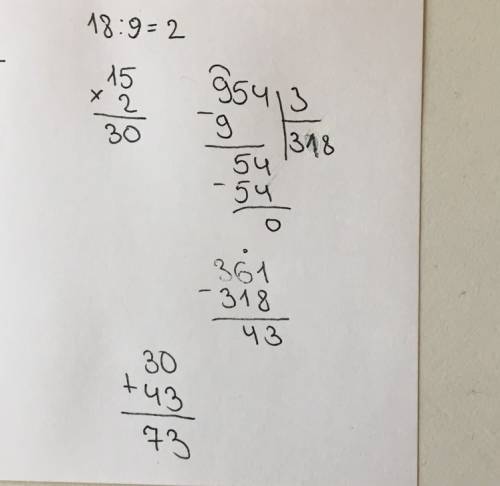 18:9=2
15
× 2
30
954 3
- 9 318
54
- 54
0
361
- 318
43
30
+ 43
73